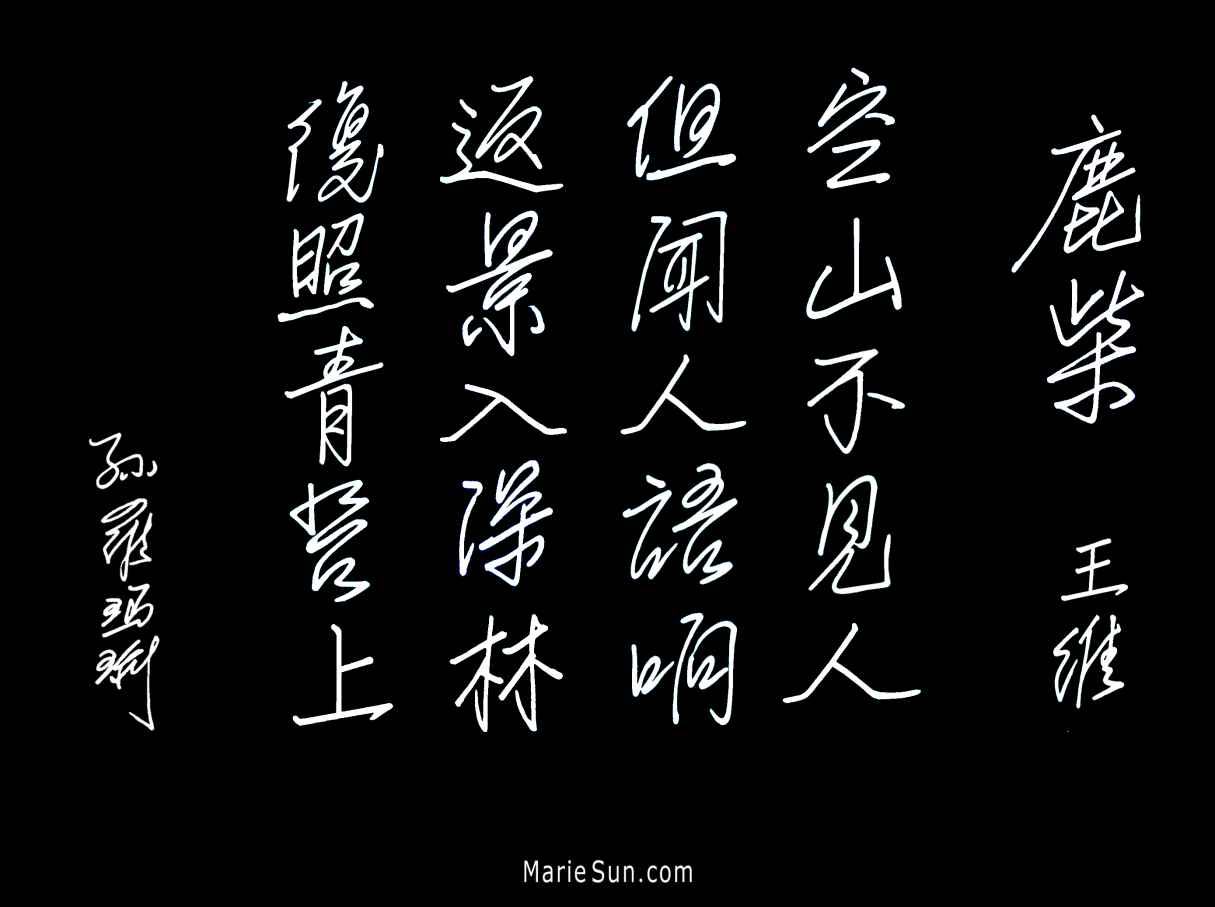 鹿柴 王維
空山不見人
但聞人語响
返景入深林
復照青苔上
孫羅瑪琍
MarieSun.com